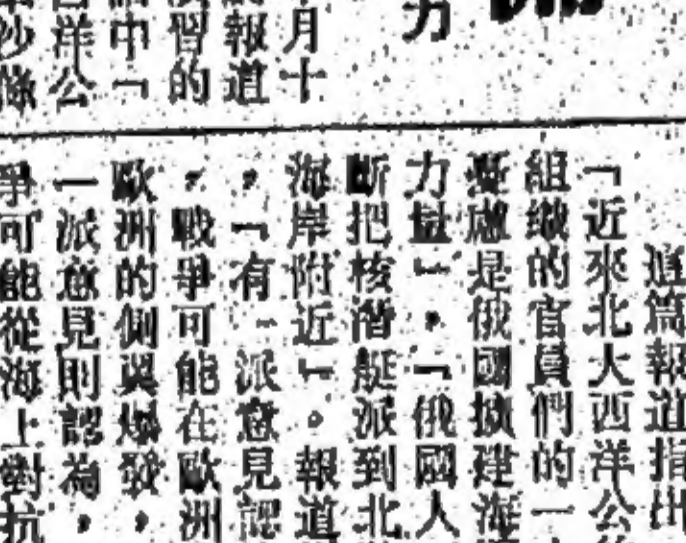 力
月十
報道
習的
中「
洋公
條
這篇報道指出
「近來北大西洋公約
組織的官員們的一
憂慮是俄國擴建海
力量」，「俄國人
斷把核潛艇派到北
海岸附近」。報道
，「有一派意見認
，戰爭可能在歐洲
歐洲的側翼爆發，
一派意見則認為，
爭可能從海上對抗